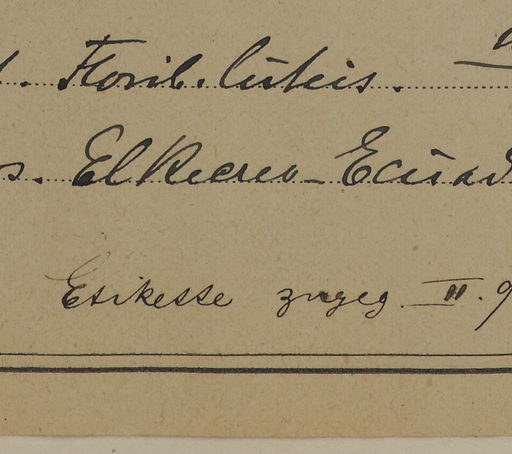 . Florib. luteis.
s. El Recreo - Ecuad
Etikette zugeg. II. 9